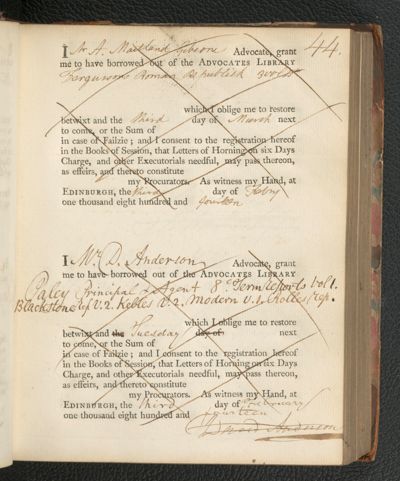 44.
I Mr A. Maitland Gibson Advocate, grant
me to have borrowed out of the ADVOCATES LIBRARY
Fergusons Roman Republick 3 vols
which I oblige me to restore
betwixt and the third day of March next
to come, or the Sum of
in case of Failzie; and I consent to the registration hereof
in the Books of Session, that Letters of Horning on six Days
Charge, and other Executorials needful, may pass thereon,
as effeirs, and thereto constitute
my Procurators. As witness my Hand, at
EDINBURGH, the third day of Feby
one thousand eight hundred and fourteen
I Mr D. Anderson Advocate, grant
me to have borrowed out of the ADVOCATES LIBRARY
Paley Principal & Agent 8o Term Reports Vol 1.
Blackstone v. 2. Kelles v. 2. Modern v. 1. Rolles rep.
which I oblige me to restore
betwixt and the Tuesday day of next
to come, or the Sum of
in case of Failzie; and I consent to the registration hereof
in the Books of Session, that Letters of Horning on six Days
Charge, and other Executorials needful, may pass thereon,
as effeirs, and thereto constitute
my Procurators. As witness my Hand, at
EDINBURGH, the third day of February
one thousand eight hundred and fourteen
David Anderson